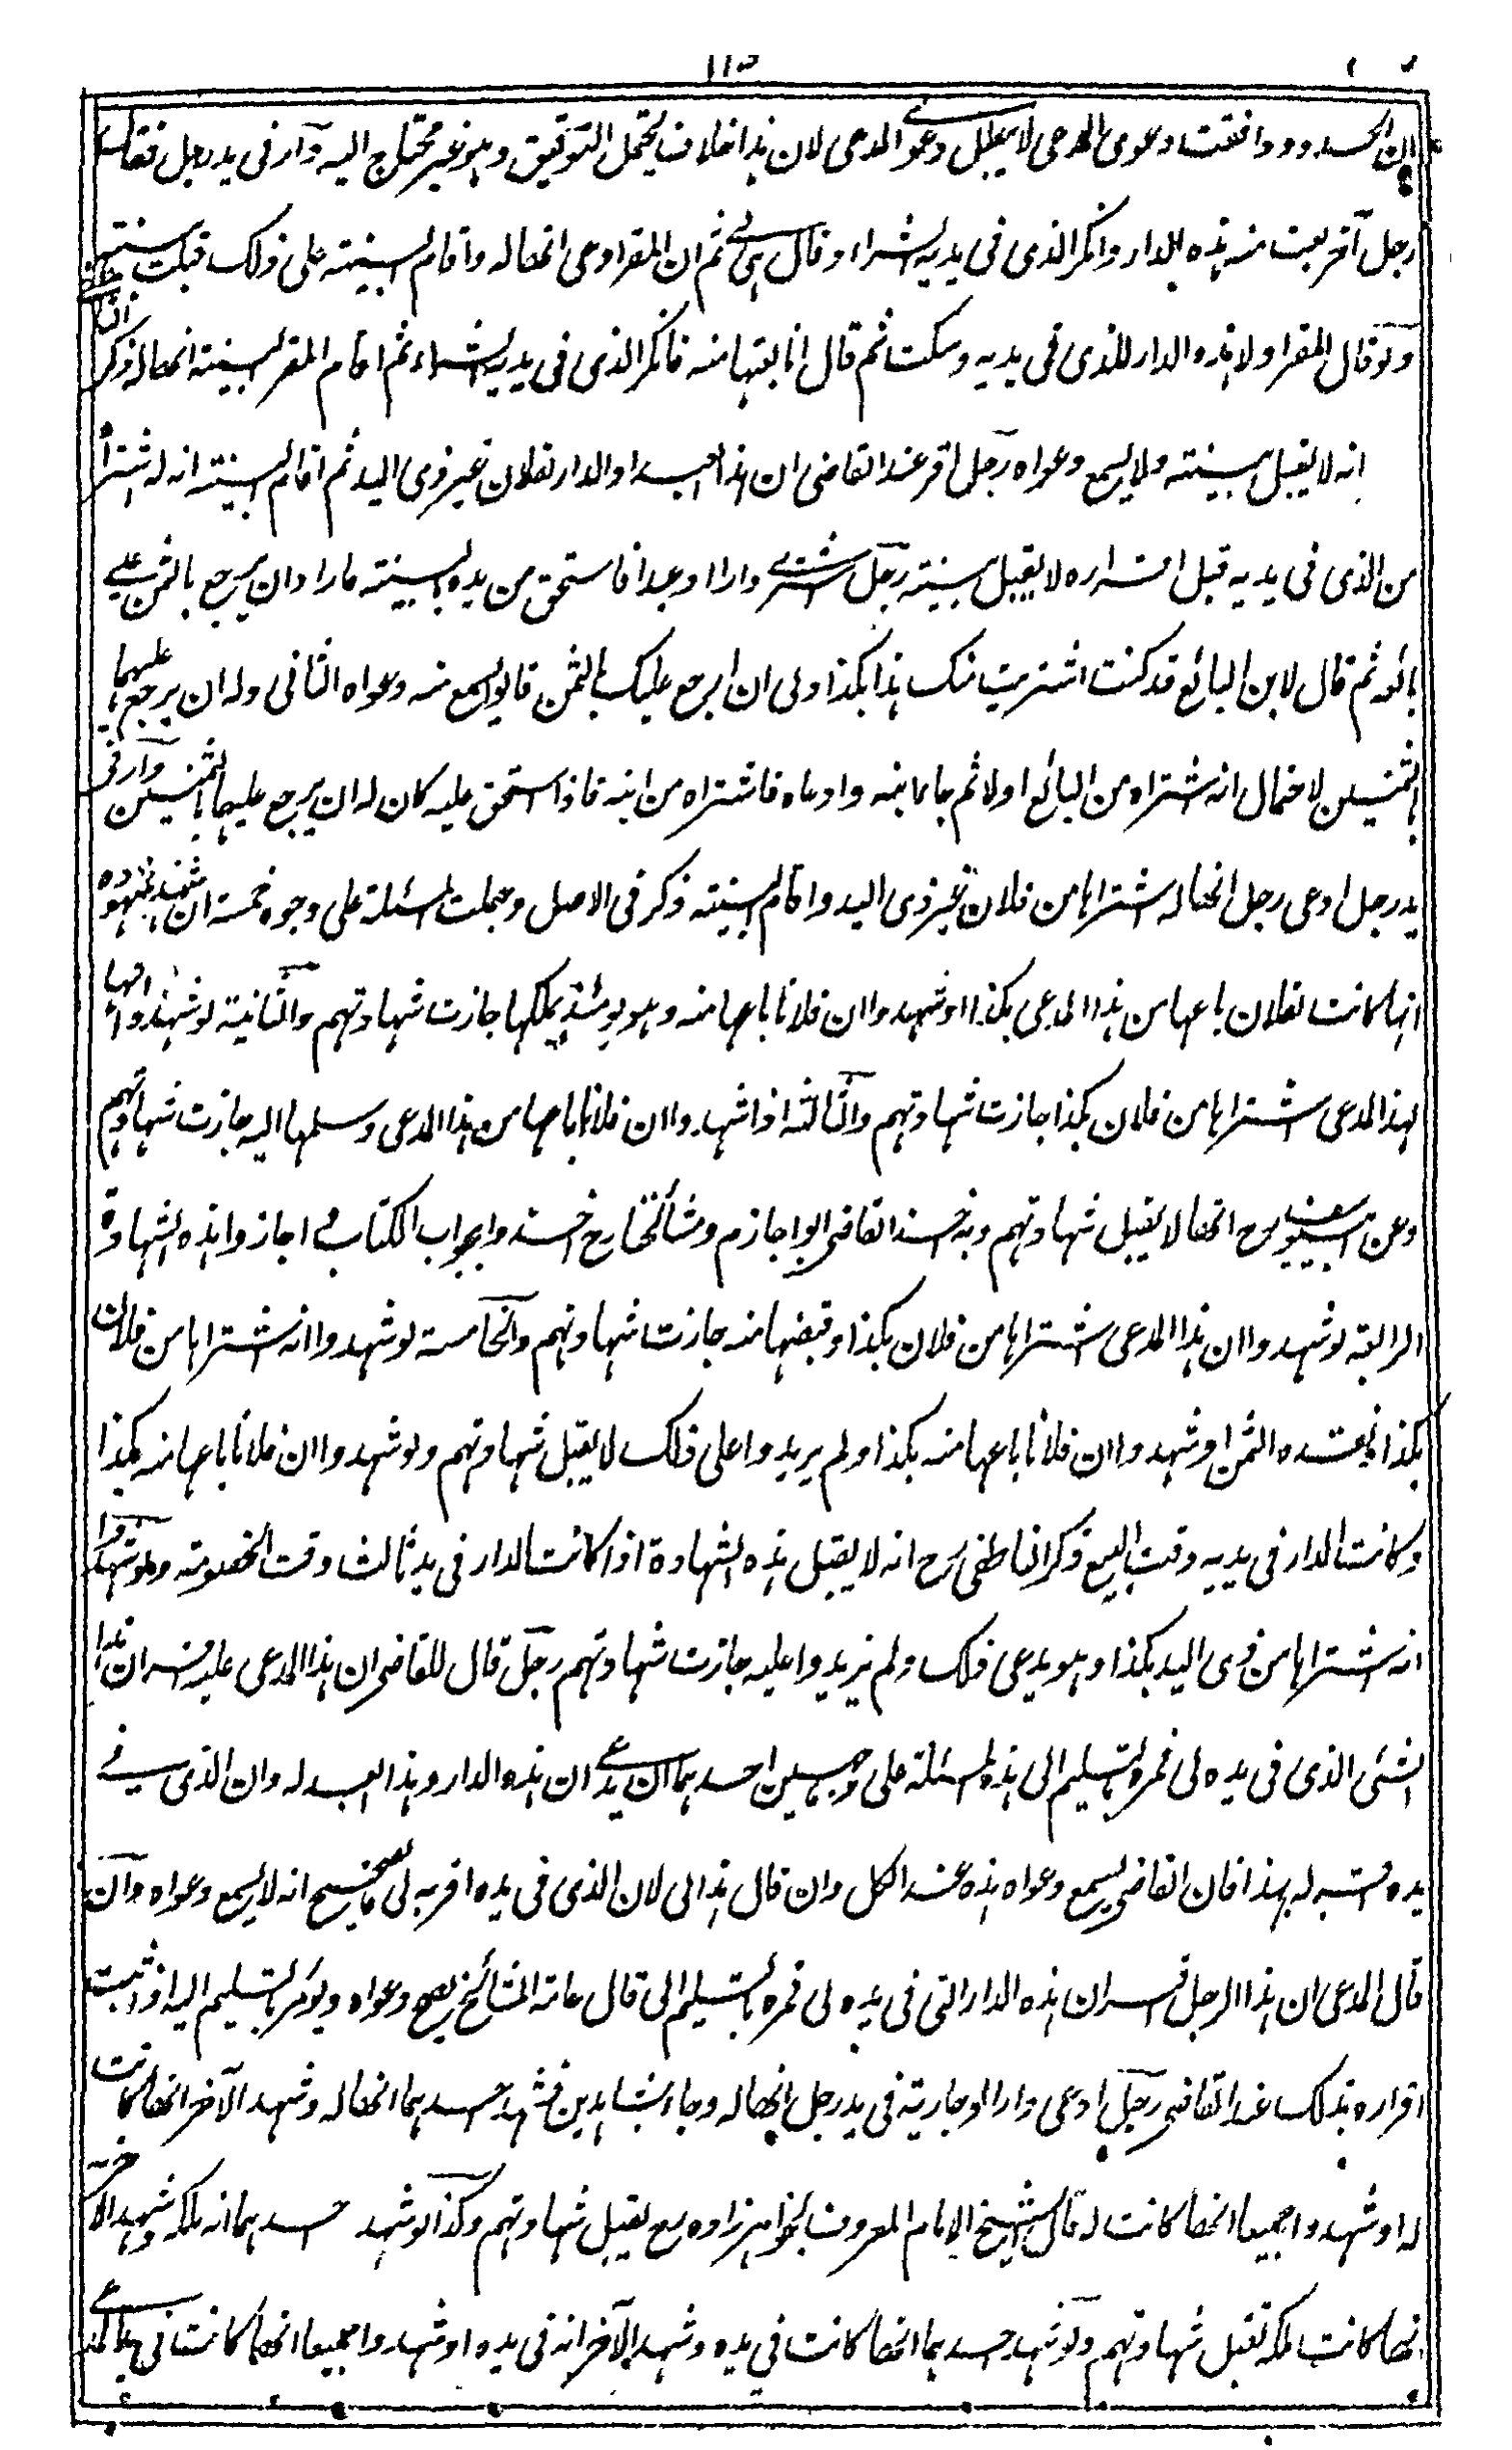 ١١٥
ان الحدود وافقت دعوى المدعى لا يبطل دعوى المدعى لان هذا خلاف يحتمل التوفيق وهو غير محتاج اليه دار فى يد رجل فقال
رجل آخر بعت منه هذه الدار وانكر الذى فى يديه الشراء وقال هى لى ثم ان المقر ادعى انها له واقام البينة على ذلك قبلت بينته
ولو قال المقر اولا هذه الدار للذى فى يديه وسكت ثم قال انا بعتها منه فانكر الذى فى يديه الشراء ثم اقام المقر البينة انها له ذكر
انه لا يقبل بينته ولا يسمع دعواه رجل اقر عند القاضى ان هذا العبد او الدار لفلان غير ذى اليد ثم اقام البينة انه له اشترا
من الذى فى يديه قبل اقراره لا يقبل بينته رجل اشترى دارا او عبدا فاستحق من يده بالبينة فاراد ان يرجع بالثمن على
بائعه ثم قال لابن البائع قد كنت اشتريت منك هذا بكذا ولى ان ارجع عليك بالثمن قالوا يسمع منه دعواه الثانى وله ان يرجع عليهما
بالثمنين لاحتمال انه اشتراه من البائع اولا ثم جاء ابنه وادعاه فاشتراه من ابنه فاذا استحق عليه كان له ان يرجع عليهما بالثمنين دار فى
يد رجل ادعى رجل انها له اشتراها من فلان غير ذى اليد واقام البينة ذكر فى الاصل وجعلت المسئلة على وجوه خمسة ان شهد شهوده
انها كانت لفلان باعها من هذا المدعى بكذا او شهدوا ان فلانا باعها منه وهو يومئذ يملكها جازت شهادتهم والثانية لو شهدوا انها
لهذا المدعى اشتراها من فلان بكذا جازت شهادتهم والثالثة اذا شهدوا ان فلانا باعها من هذا المدعى وسلمها اليه جازت شهادتهم
وعن ابى يوسف رح انها لا يقبل شهادتهم وبه اخذ القاضى ابو حازم ومشائخنا رح اخذوا بجواب الكتاب اجازوا هذه الشهادة
الرابعة لو شهدوا ان هذا المدعى اشتراها من فلان بكذا وقبضها منه جازت شهادتهم والخامسة لو شهدوا انه اشتراها من فلان
بكذا ونقده الثمن او شهدوا ان فلانا باعها منه بكذا ولم يزيدوا على ذلك لا يقبل شهادتهم ولو شهدوا ان فلانا باعها منه بكذا
وكانت الدار فى يديه وقت البيع ذكر الناطفى رح انه لا يقبل هذه الشهادة اذا كانت الدار فى يد ثالث وقت الخصومة ولو شهدوا
انه اشتراها من ذى اليد بكذا وهو يدعى ذلك ولم يزيدوا عليه جازت شهادتهم رجل قال للقاضى ان هذا المدعى عليه اقر ان هذا
الشئ الذى فى يده لى فمره بالتسليم الى هذه المسئلة على وجهين احدهما ان يدعى ان هذه الدار وهذا العبد له وان الذى فى
يده اقر به له بهذا فان القاضى يسمع دعواه هذه عند الكل وان قال هذا لى لان الذى فى يده اقر به لى فالصحيح انه لا يسمع دعواه وان
قال المدعى ان هذا الرجل اقر ان هذه الدار التى فى يده لى فمره بالتسليم الى قال عامة المشائخ يصح دعواه ويؤمر بالتسليم اليه اذا ثبت
اقراره بذلك عند القاضى رجل ادعى دارا او جارية فى يد رجل انها له وجاء بشاهدين فشهد احدهما انها له وشهد الآخر انها كانت
له او شهدوا جميعا انها كانت له قال الشيخ الامام المعروف بخواهرزاده رح يقبل شهادتهم وكذا لو شهد احدهما انه ملكه وشهد الآخر
انها كانت ملكه تقبل شهادتهم ولو شهد احدهما انها كانت فى يده وشهد الآخر انه فى يده او شهدوا جميعا انها كانت فى يد